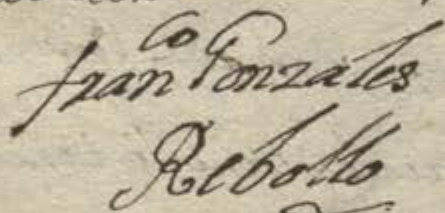 Fran^co Gonzales
Rebollo